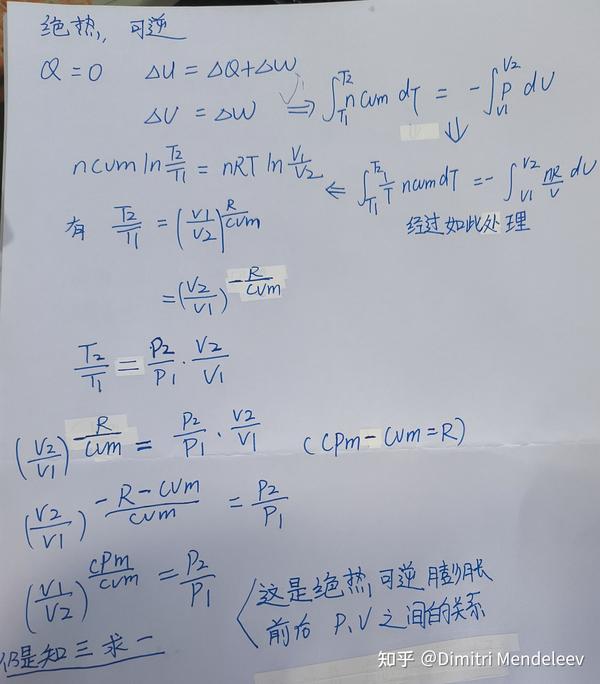 绝热,可逆
Q = 0 ΔU = ΔQ+ΔW
ΔU = ΔW ⇒ ∫_{T1}^{T2} n Cvm dT = -∫_{V1}^{V2} P dV
⇓
nCvm ln T2/T1 = nRT ln V1/V2 ⇐ ∫_{T1}^{T2} 1/T nCvm dT = -∫_{V1}^{V2} nR/V dV
经过如此处理
有 T2/T1 = (V1/V2)^{R/Cvm}
= (V2/V1)^{-R/Cvm}
T2/T1 = P2/P1 · V2/V1
(V2/V1)^{-R/Cvm} = P2/P1 · V2/V1 (CPm - CVm = R)
(V2/V1)^{(-R-CVm)/CVm} = P2/P1
(V1/V2)^{CPm/CVm} = P2/P1
这是绝热,可逆膨胀
前后 P,V 之间的关系
仍是知三求一
知乎 @Dimitri Mendeleev